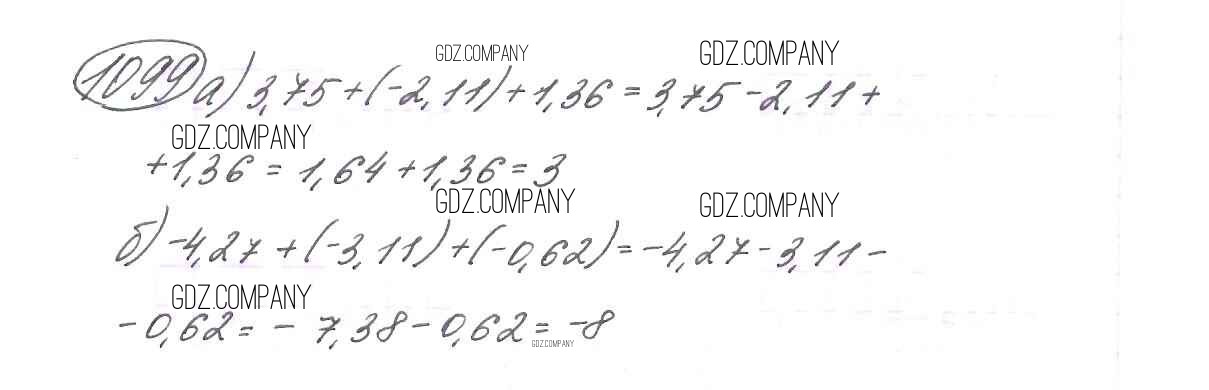 GDZ.COMPANY GDZ.COMPANY
1099 а) 3,75 + (-2,11) + 1,36 = 3,75 - 2,11 +
GDZ.COMPANY
+ 1,36 = 1,64 + 1,36 = 3
GDZ.COMPANY GDZ.COMPANY
б) -4,27 + (-3,11) + (-0,62) = -4,27 - 3,11 -
GDZ.COMPANY
- 0,62 = - 7,38 - 0,62 = -8
GDZ.COMPANY